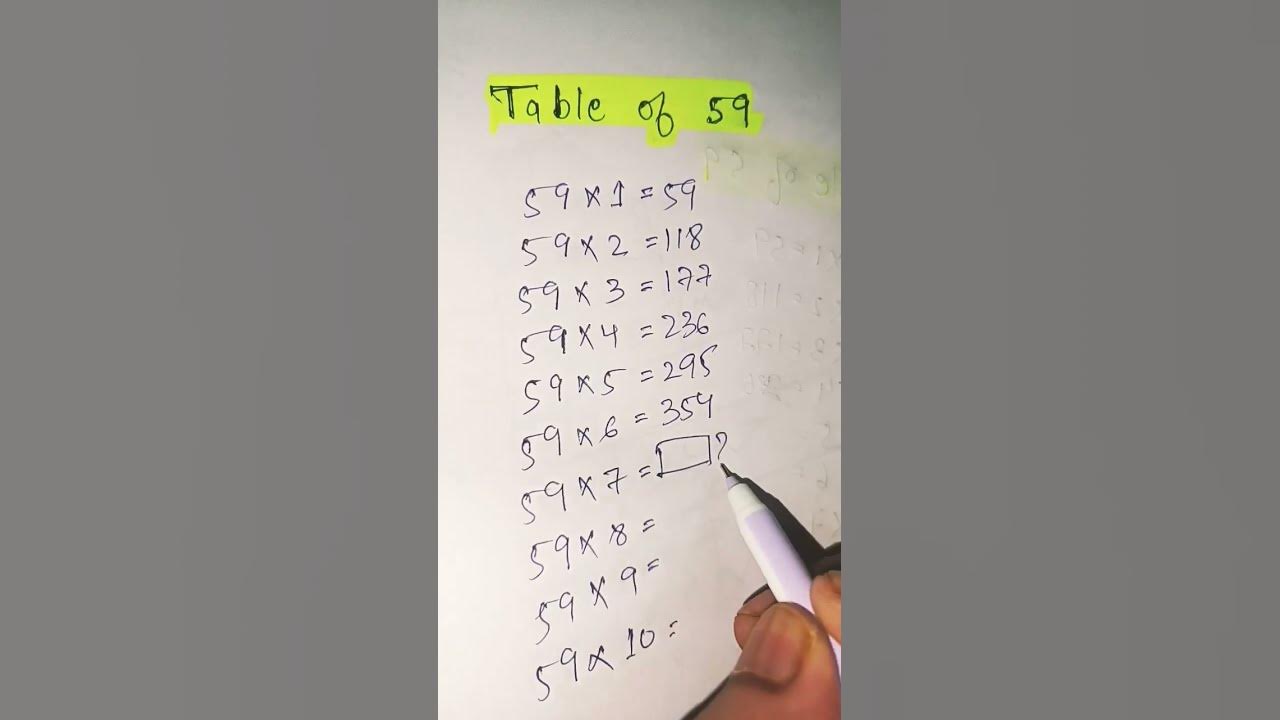 Table of 59
59 × 1 = 59
59 × 2 = 118
59 × 3 = 177
59 × 4 = 236
59 × 5 = 295
59 × 6 = 354
59 × 7 = ?
59 × 8 =
59 × 9 =
59 × 10 =